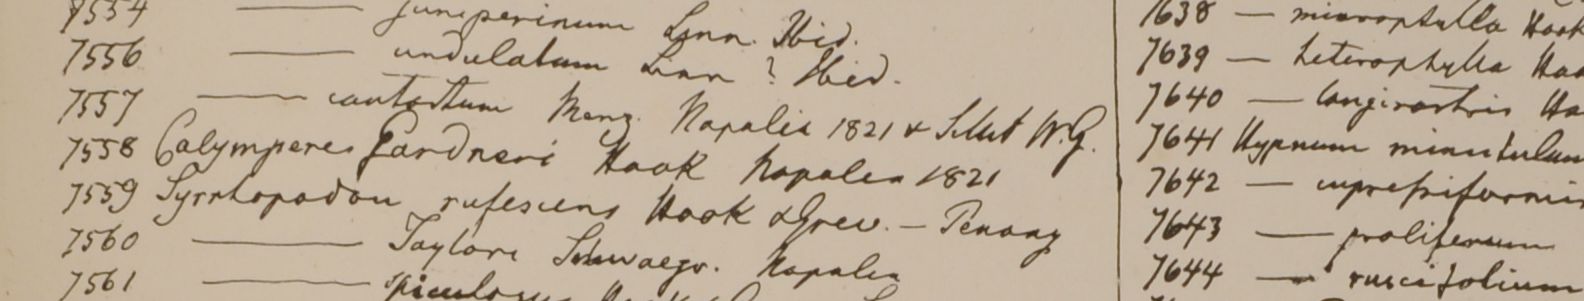 7554 —— juniperinum Linn. Ibid.
7556 —— undulatum Linn ? Ibid.
7557 —— contortum Menz. Napalia 1821 & Sillet W.G.
7558 Calymperes Gardneri Hook Napalea 1821
7559 Syrrhopodon rufescens Hook & Grev. — Penang
7560 —— Taylori Schwaegr. Napalea
7561 —— spiculosus Hook
1638 — microphylla Hook
7639 — heterophylla Hoo
7640 — longirostris Ho
7641 Hypnum minutulum
7642 — cupressiformis
7643 — proliferum
7644 — ruscifolium